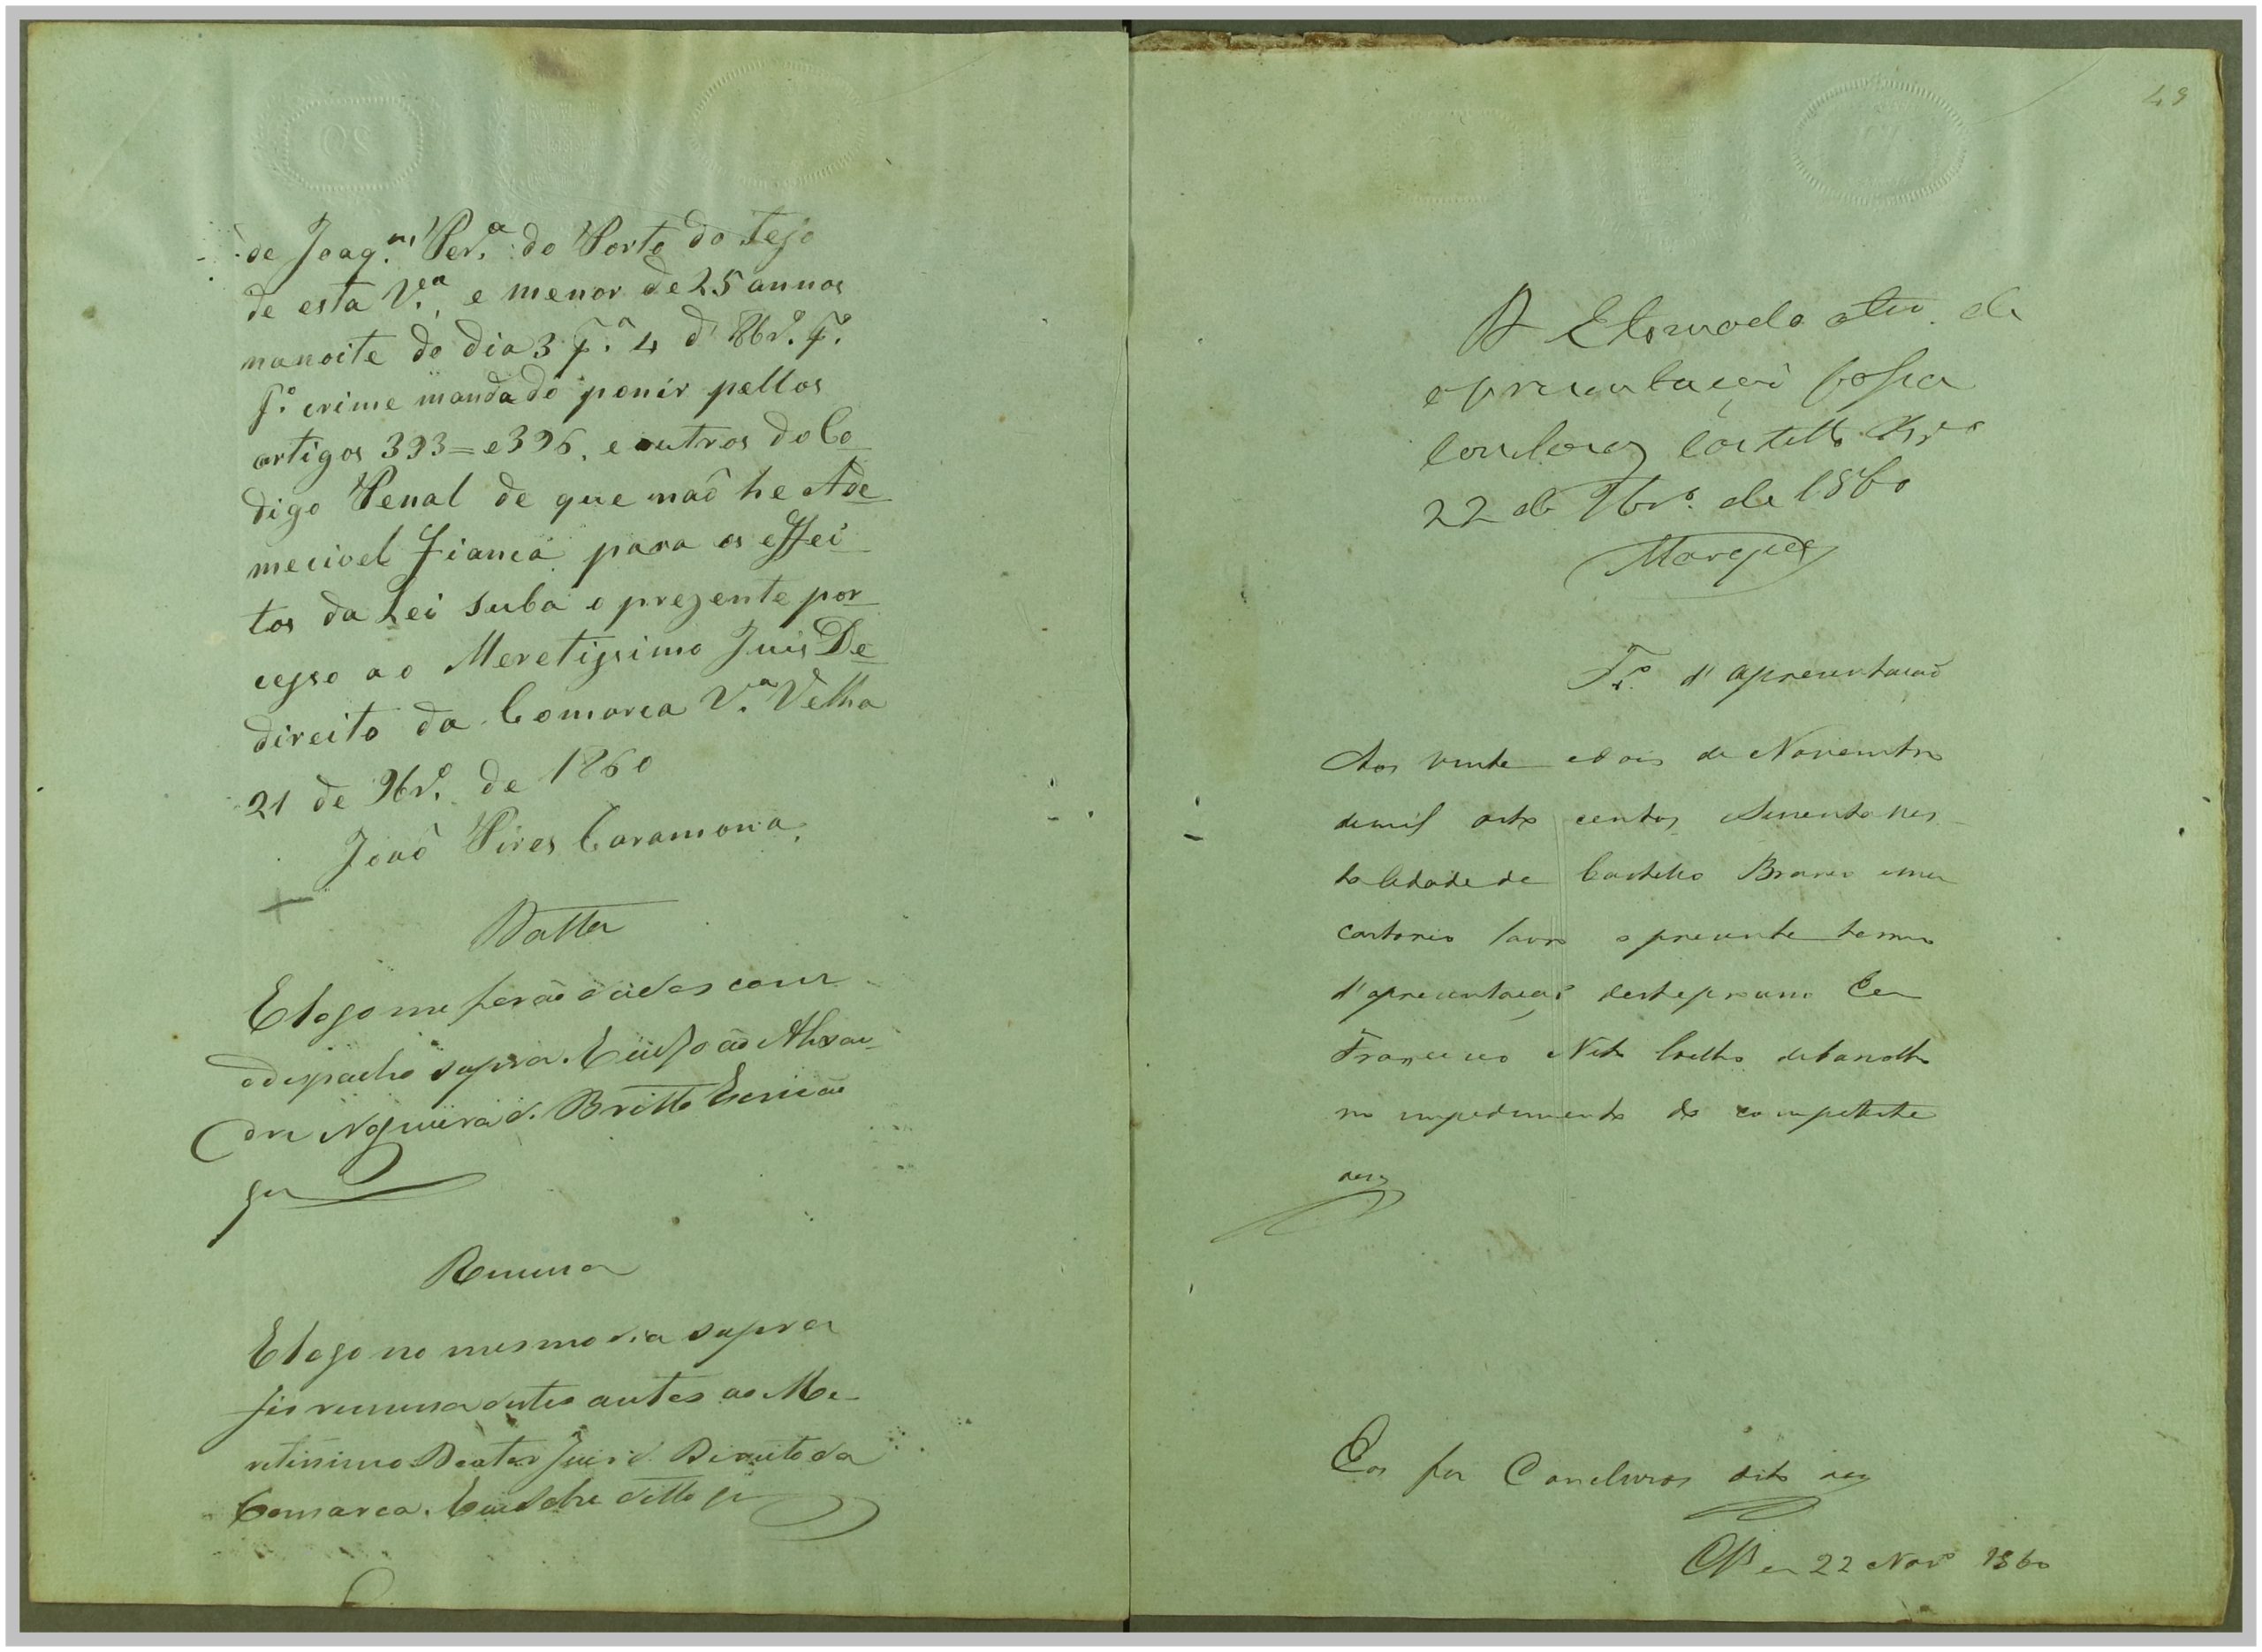 de Joaq.m Per.a do Porto do Tejo
de esta V.a, e menor de 25 annos
na noite do dia 3 p.a 4 d' 8br.o p.o
p.o crime mandado ponir pellos
artigos 393=e 396, e outros do Co
digo Penal de que naõ he Ade
mecivel fianca para os effei
tos da Lei suba o prezente por
cesso ao Meretissimo Juis De
direito da Comarca V.a Velha
21 de 9br.o de 1860
Joaõ Pires Caramona.
Datta
E logo me foraõ dados com
o despacho supra. E eu Joaõ Alexan
dre Nogueira d. Britto Escrivaõ
Remessa
E logo no mesmo dia supra
fis remessa destes autos ao Me-
retissimo Doutor Juis d. Direito da
Comarca. E eu sobre ditto
49
de
apresentaçaõ faça
concluzos Castello Br.co
22 de 9br.o de 1860
Marques
T.o d'apresentacaõ
Aos vinte e dois de Novembro
de mil oito centos sesenta nes
ta Cidade de Castello Branco e meu
cartorio lavro o presente termo
d'apresentaçaõ deste processo Eu
Francisco Neto Coelho
no impedimento do competente
Os fis Concluzos dito
CB em 22 Nov.o 1860